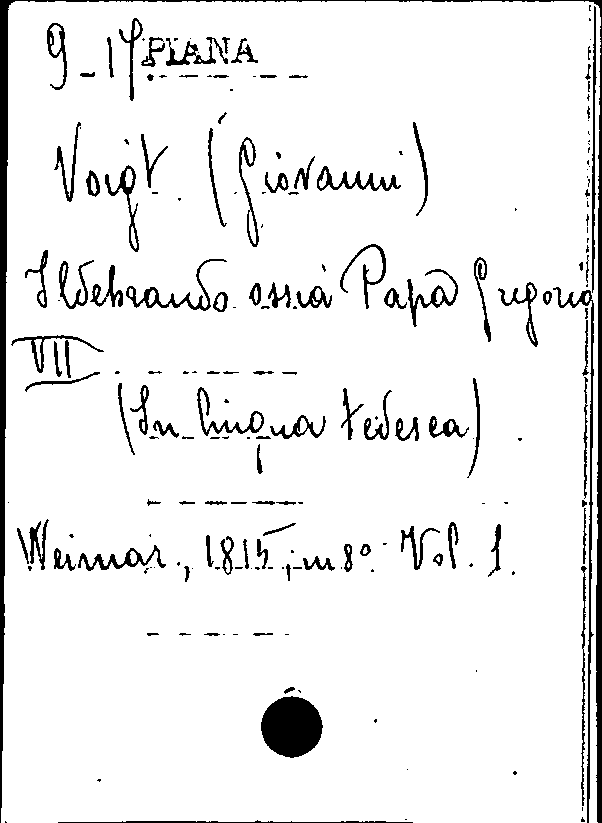 9-17 PIANA
Voigt (Giovanni)
Ildebrando ossia Papa Gregorio
VII
(In lingua tedesca)
Weimar, 1815, in 8° Vol. 1.